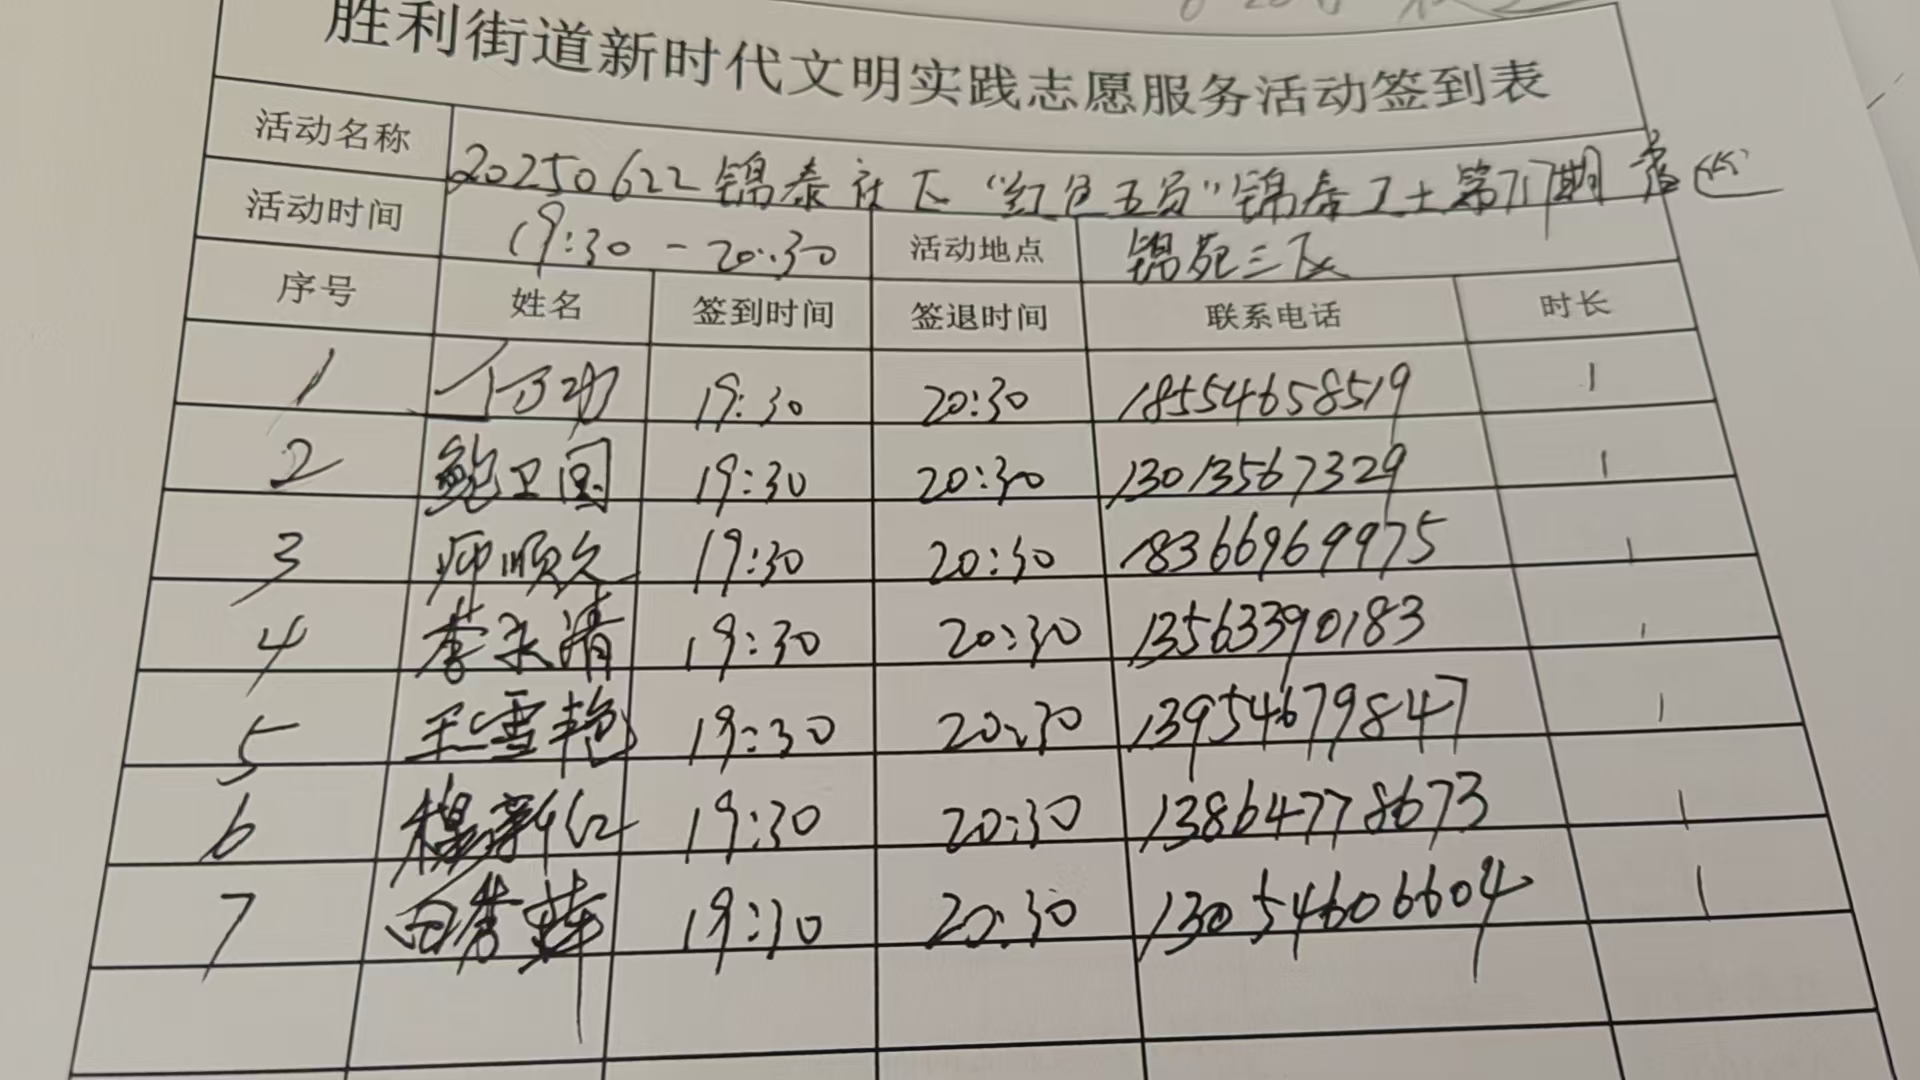 胜利街道新时代文明实践志愿服务活动签到表
活动名称 20250622锦泰社区“红色五员”锦泰卫士第717期
活动时间 19:30-20:30 活动地点 锦苑三区
序号 姓名 签到时间 签退时间 联系电话 时长
1 19:30 20:30 18554658519 1
2 鲍卫国 19:30 20:30 13013567329 1
3 师顺久 19:30 20:30 18366969975 1
4 李永清 19:30 20:30 13563390183 1
5 王雪艳 19:30 20:30 13954679847 1
6 杨新红 19:30 20:30 13864778673 1
7 白秀萍 19:30 20:30 13054606604 1